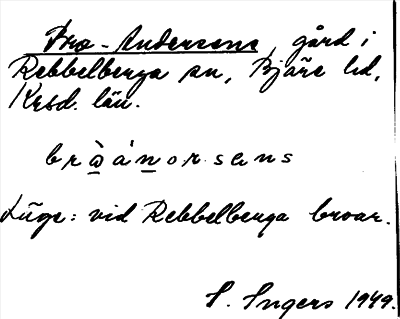 Bro-Andersens, gård i
Rebbelberga sn, Bjäre hd,
Krsd. län.
brа̀ánorsens
Läge: vid Rebbelberga broar.
S. Ingers 1949.